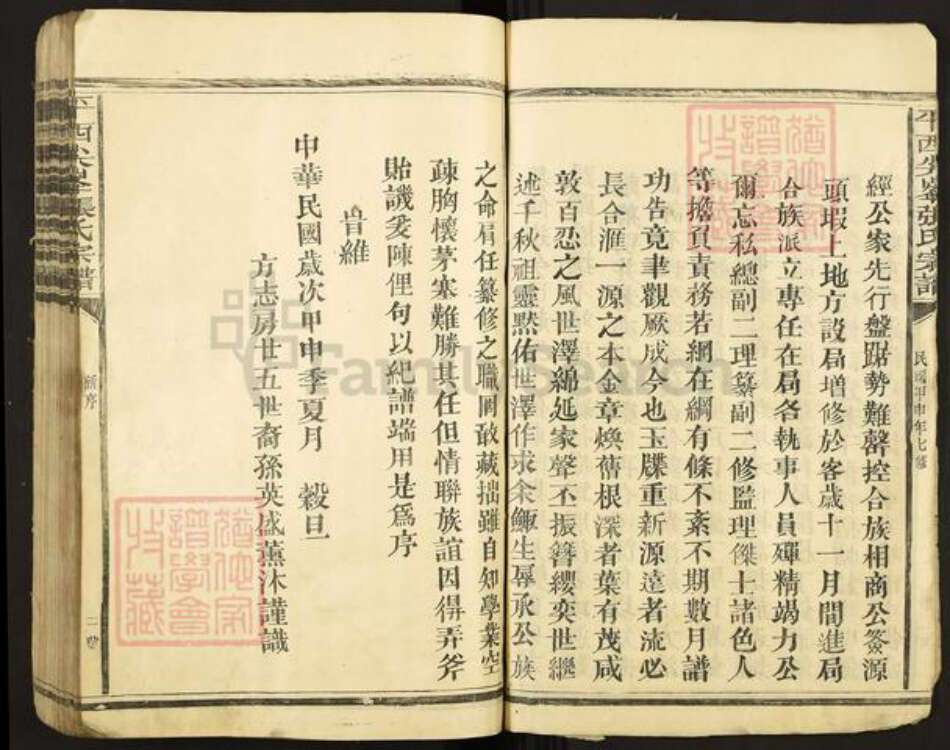 平西尖峯張氏宗譜
民國甲申年七修
經公家先行盤踞勢難罄控合族相商公簽源
頭瑕上地方設局增修於客歲十一月間進局
合族派立專任在局各執事人員殫精竭力公
爾忘私總副二理纂副二修監理傑士諸色人
等擔負責務若網在綱有條不紊不期數月譜
功告竟聿觀厥成今也玉牒重新源遠者流必
長合滙一源之本金章煥舊根深者葉有茂咸
敦百忍之風世澤綿延家聲丕振簪纓奕世繼
述千秋祖靈默佑世澤作求余鯫生辱承公族
之命肩任纂修之職罔敢藏拙雖自知學業空
疎胸懷茅塞難勝其任但情聯族誼因得弄斧
貽譏爰陳俚句以紀譜端用是為序
旹維
中華民國歲次甲申季夏月 穀旦
方志房廿五世裔孫英盛薰沐謹識
平西尖峯張氏宗譜
新序
猶他家
譜學會
收藏
猶他家
譜學會
收藏
FamilySearch